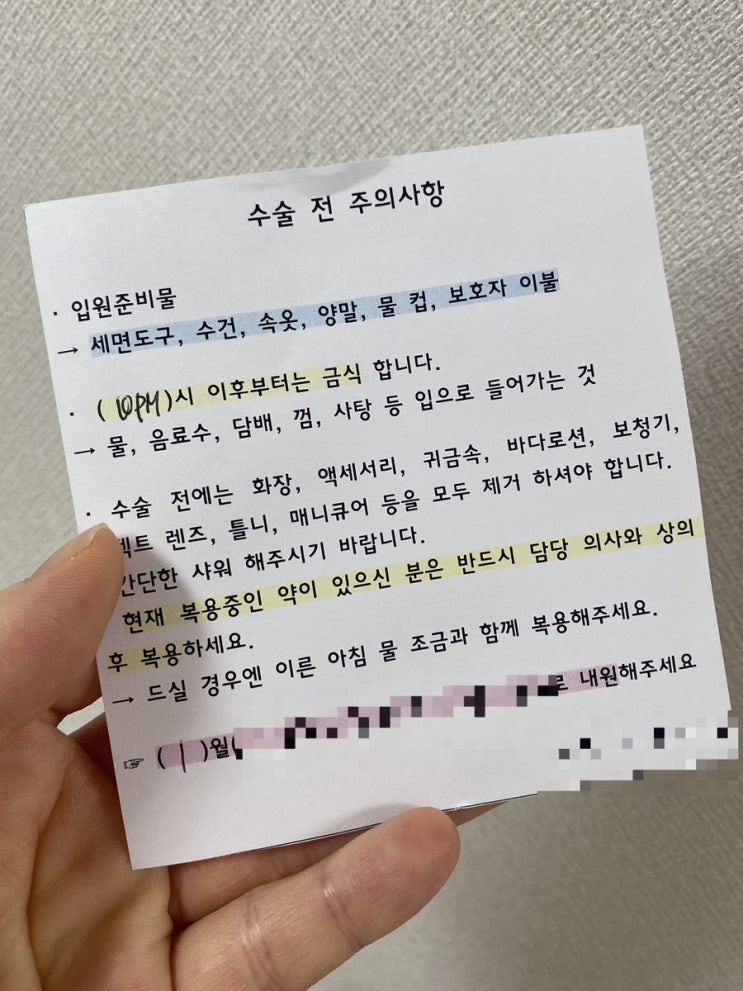 수술 전 주의사항
· 입원준비물
→ 세면도구, 수건, 속옷, 양말, 물 컵, 보호자 이불
· (10PM)시 이후부터는 금식 합니다.
→ 물, 음료수, 담배, 껌, 사탕 등 입으로 들어가는 것
· 수술 전에는 화장, 액세서리, 귀금속, 바다로션, 보청기,
렌즈, 틀니, 매니큐어 등을 모두 제거 하셔야 합니다.
간단한 샤워 해주시기 바랍니다.
현재 복용중인 약이 있으신 분은 반드시 담당 의사와 상의
후 복용하세요.
→ 드실 경우엔 이른 아침 물 조금과 함께 복용해주세요.
☞ ( 1 )월( 로 내원해주세요